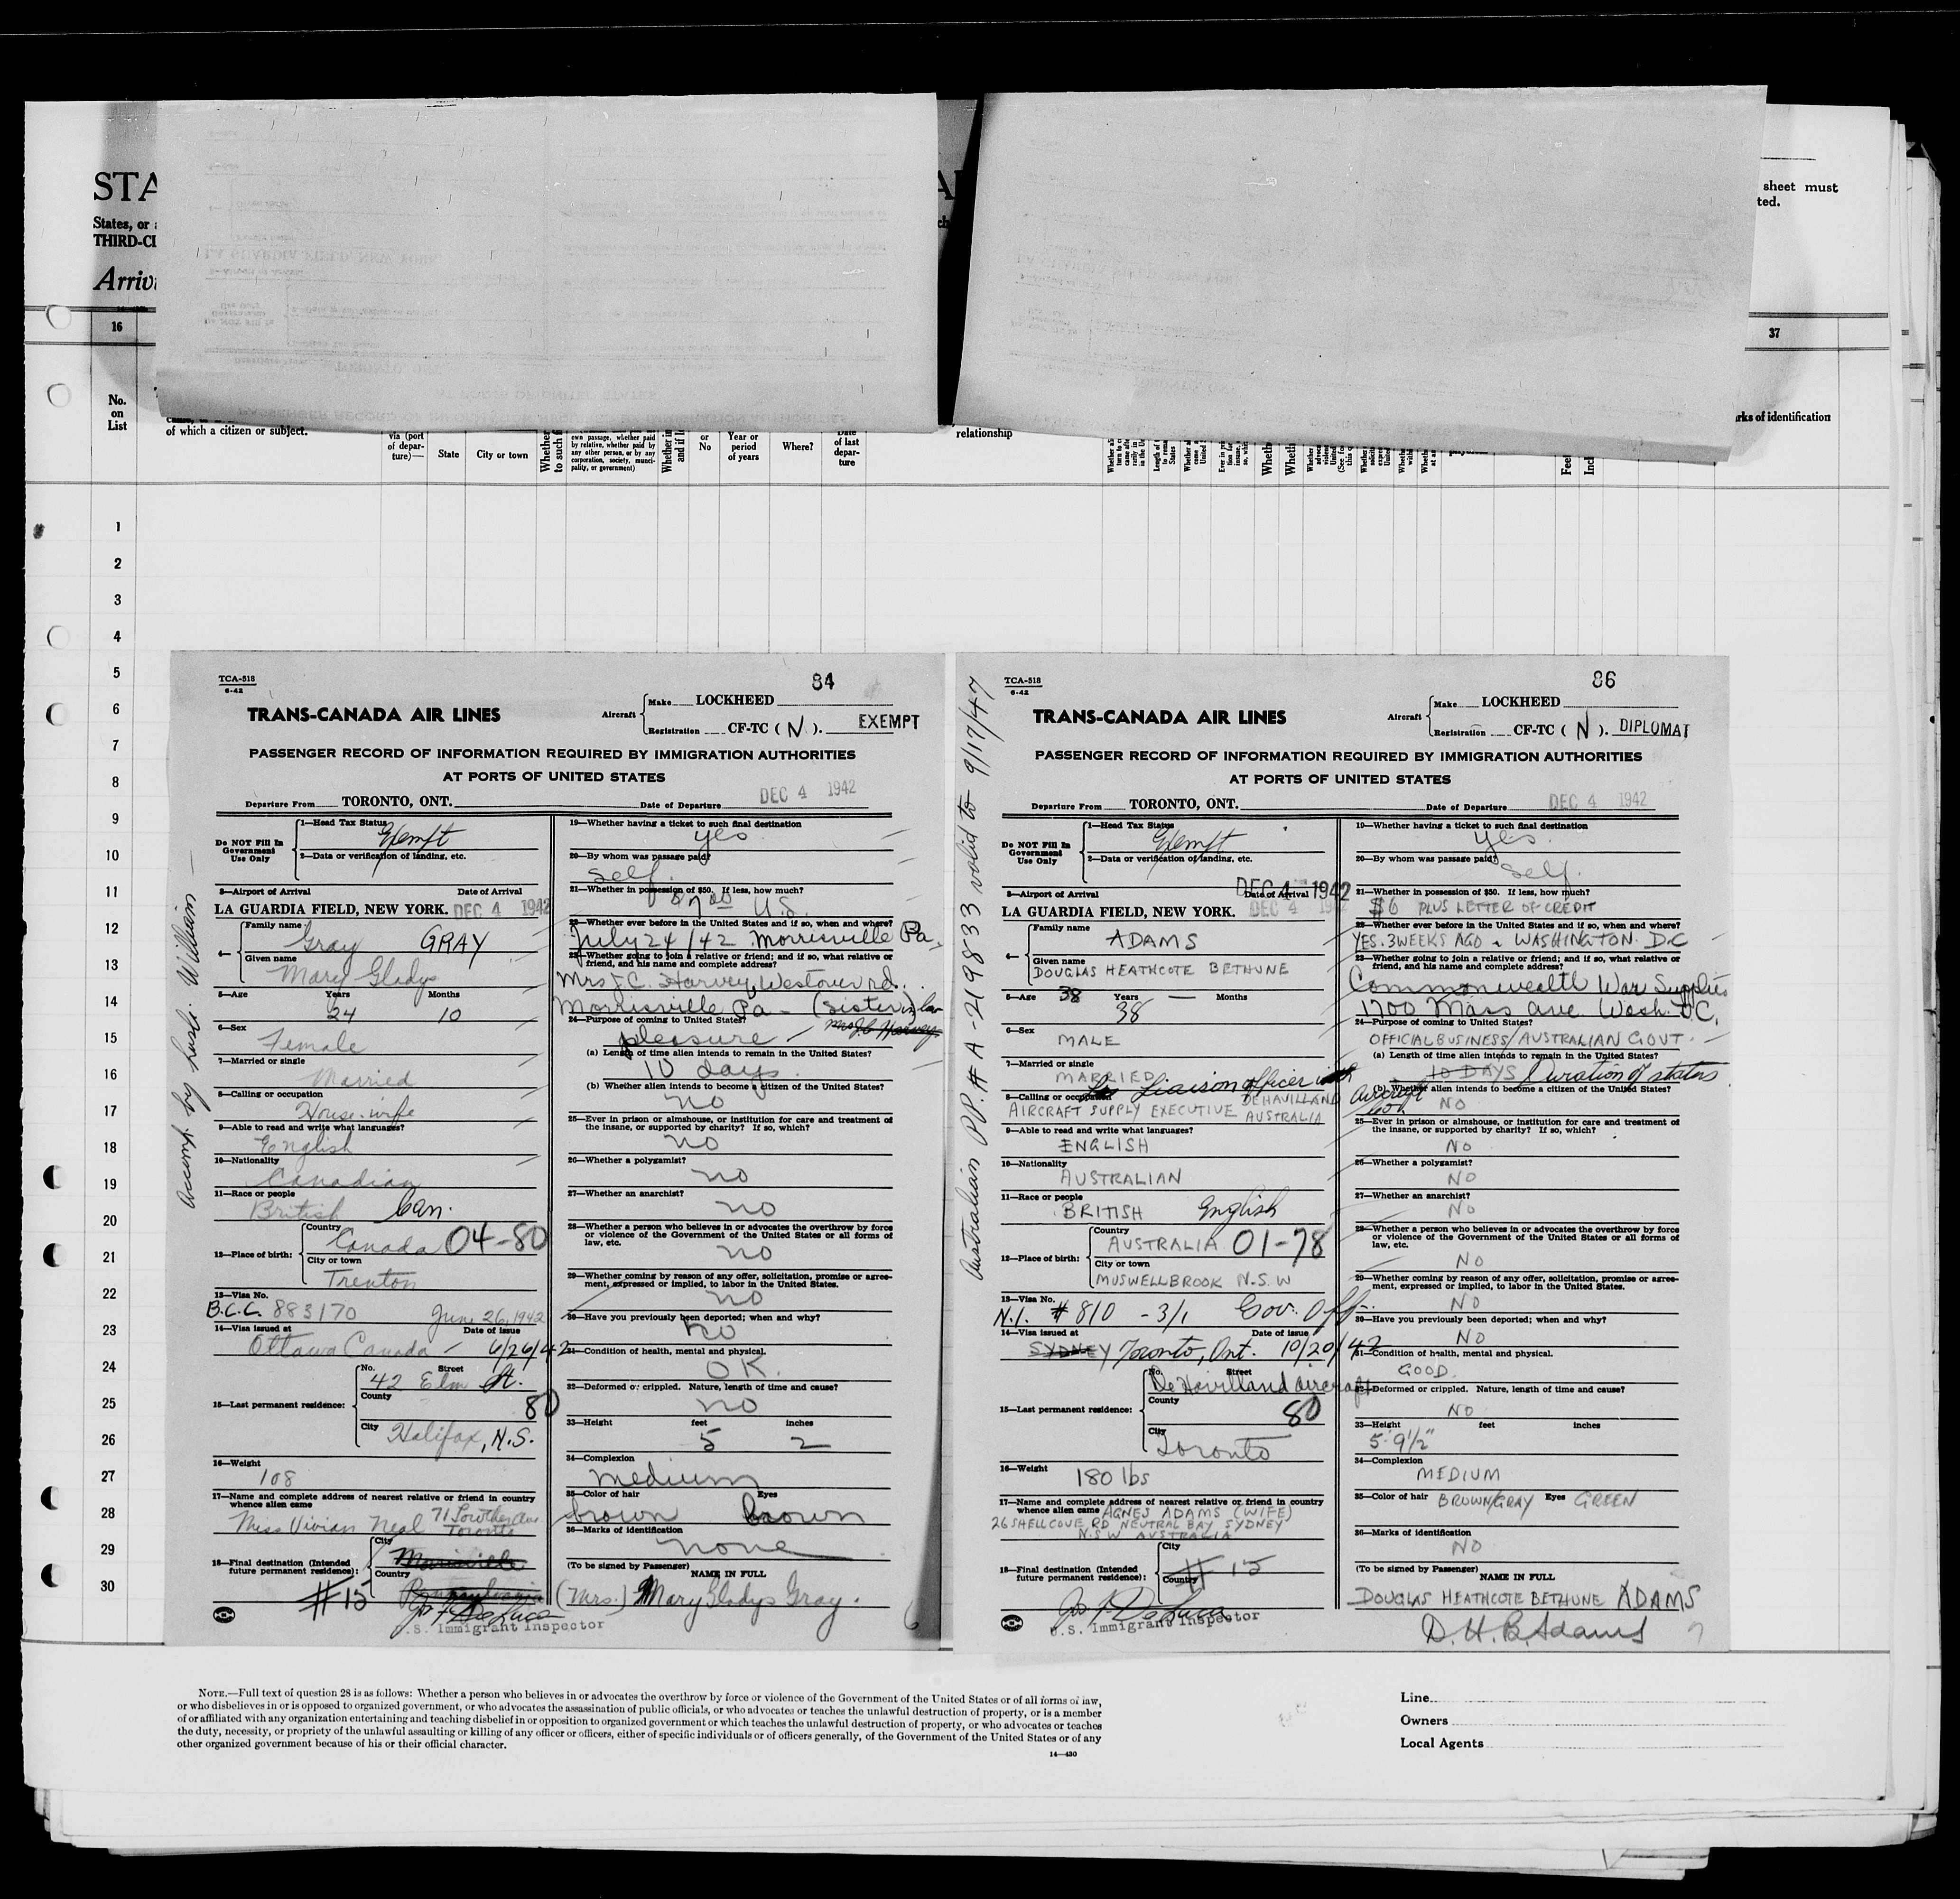 STA
States, or
THIRD-Cl
Arriv
sheet must
ted.
16
37
No.
on
List
of which a citizen or subject.
via (port
of depar-
ture)—
State
City or town
Whether
to such f
own passage, whether paid
by relative, whether paid by
any other person, or by any
corporation, society, munici-
pality, or government)
Whether in
and if l
or
No
Year or
period
of years
Where?
Date
of last
depar-
ture
relationship
rks of identification
Feet
1
2
3
4
5
6
7
8
9
10
11
12
13
14
15
16
17
18
19
20
21
22
23
24
25
26
27
28
29
30
TCA-518
6-42
84
TRANS-CANADA AIR LINES
Aircraft
Make LOCKHEED
Registration CF-TC (N). EXEMPT
PASSENGER RECORD OF INFORMATION REQUIRED BY IMMIGRATION AUTHORITIES
AT PORTS OF UNITED STATES
Departure From TORONTO, ONT. Date of Departure DEC 4 1942
Accomp by husb. William
Do NOT Fill In
Government
Use Only
1—Head Tax Status
Exempt
2—Data or verification of landing, etc.
3—Airport of Arrival Date of Arrival
LA GUARDIA FIELD, NEW YORK. DEC 4 1942
4—
Family name
Gray GRAY
Given name
Mary Gladys
5—Age Years Months
24 10
6—Sex
Female
7—Married or single
Married
8—Calling or occupation
House-wife
9—Able to read and write what languages?
English
10—Nationality
Canadian
11—Race or people
British Can.
12—Place of birth:
Country
Canada 04-80
City or town
Trenton
13—Visa No.
B.C.C. 883170 June 26, 1942
14—Visa issued at Date of issue
Ottawa Canada — 6/26/42
15—Last permanent residence:
No. Street
42 Elm St.
County
80
City Halifax, N.S.
16—Weight
108
17—Name and complete address of nearest relative or friend in country
whence alien came
Miss Vivian Neal 71 Lowther Ave
Toronto
18—Final destination (Intended
future permanent residence):
City
Morrisville
Country
Pennsylvania
#15
U.S. Immigrant Inspector
19—Whether having a ticket to such final destination
yes
20—By whom was passage paid?
Self.
21—Whether in possession of $50. If less, how much?
U.S.
22—Whether ever before in the United States and if so, when and where?
July 24/42 Morrisville Pa.
23—Whether going to join a relative or friend; and if so, what relative or
friend, and his name and complete address?
Mrs J.C. Harvey, Westover rd.
Morrisville Pa — (Sister in law
24—Purpose of coming to United States?
Mrs J.C. Harvey
pleasure
(a) Length of time alien intends to remain in the United States?
10 days.
(b) Whether alien intends to become a citizen of the United States?
no
25—Ever in prison or almshouse, or institution for care and treatment of
the insane, or supported by charity? If so, which?
no
26—Whether a polygamist?
no
27—Whether an anarchist?
no
28—Whether a person who believes in or advocates the overthrow by force
or violence of the Government of the United States or all forms of
law, etc.
no
29—Whether coming by reason of any offer, solicitation, promise or agree-
ment, expressed or implied, to labor in the United States.
no
30—Have you previously been deported; when and why?
no
31—Condition of health, mental and physical.
OK.
32—Deformed or crippled. Nature, length of time and cause?
no
33—Height feet inches
5 2
34—Complexion
medium
35—Color of hair Eyes
brown brown
36—Marks of identification
none
(To be signed by Passenger)
NAME IN FULL
(Mrs.) Mary Gladys Gray.
6
TCA-518
6-42
86
TRANS-CANADA AIR LINES
Aircraft
Make LOCKHEED
Registration CF-TC (N). DIPLOMAT
PASSENGER RECORD OF INFORMATION REQUIRED BY IMMIGRATION AUTHORITIES
AT PORTS OF UNITED STATES
Departure From TORONTO, ONT. Date of Departure DEC 4 1942
Australian PP. # A-219833 valid to 9/17/47
Do NOT Fill In
Government
Use Only
1—Head Tax Status
Exempt
2—Data or verification of landing, etc.
3—Airport of Arrival Date of Arrival
DEC 4 1942
LA GUARDIA FIELD, NEW YORK. DEC 4 1942
4—
Family name
ADAMS
Given name
DOUGLAS HEATHCOTE BETHUNE
5—Age 38 Years — Months
38
6—Sex
MALE
7—Married or single
MARRIED
Liaison officer with aircraft
8—Calling or occupation DEHAVILLAND
AIRCRAFT SUPPLY EXECUTIVE AUSTRALIA
9—Able to read and write what languages?
ENGLISH
10—Nationality
AUSTRALIAN
11—Race or people
BRITISH English
12—Place of birth:
Country
AUSTRALIA 01-78
City or town
MUSWELLBROOK N.S.W
13—Visa No.
N.I. #810 -3/1 Gov. Off.
14—Visa issued at Date of issue
SYDNEY Toronto, Ont. 10/20/42
15—Last permanent residence:
No. Street
De Havilland aircraft
County
80
City
Toronto
16—Weight
180 lbs
17—Name and complete address of nearest relative or friend in country
whence alien came AGNES ADAMS (WIFE)
26 SHELLCOVE RD NEUTRAL BAY SYDNEY
N.S.W AUSTRALIA
18—Final destination (Intended
future permanent residence):
City
# 15
Country
U.S. Immigrant Inspector
19—Whether having a ticket to such final destination
yes.
20—By whom was passage paid?
Self.
21—Whether in possession of $50. If less, how much?
$6 PLUS LETTER OF CREDIT
22—Whether ever before in the United States and if so, when and where?
YES. 3 WEEKS AGO - WASHINGTON. D.C
23—Whether going to join a relative or friend; and if so, what relative or
friend, and his name and complete address?
Commonwealth War Supplies
1700 Mass ave. Wash. D.C.
24—Purpose of coming to United States?
OFFICIAL BUSINESS/AUSTRALIAN GOVT.
(a) Length of time alien intends to remain in the United States?
10 DAYS Duration of status
(b) Whether alien intends to become a citizen of the United States?
NO
25—Ever in prison or almshouse, or institution for care and treatment of
the insane, or supported by charity? If so, which?
NO
26—Whether a polygamist?
NO
27—Whether an anarchist?
NO
28—Whether a person who believes in or advocates the overthrow by force
or violence of the Government of the United States or all forms of
law, etc.
NO
29—Whether coming by reason of any offer, solicitation, promise or agree-
ment, expressed or implied, to labor in the United States.
NO
30—Have you previously been deported; when and why?
NO
31—Condition of health, mental and physical.
GOOD.
32—Deformed or crippled. Nature, length of time and cause?
NO
33—Height feet inches
5' 9 1/2"
34—Complexion
MEDIUM
35—Color of hair BROWN/GRAY Eyes GREEN
36—Marks of identification
NO
(To be signed by Passenger)
NAME IN FULL
DOUGLAS HEATHCOTE BETHUNE ADAMS
D. H. B. Adams
7
NOTE.—Full text of question 28 is as follows: Whether a person who believes in or advocates the overthrow by force or violence of the Government of the United States or of all forms of law,
or who disbelieves in or is opposed to organized government, or who advocates the assassination of public officials, or who advocates or teaches the unlawful destruction of property, or is a member
of or affiliated with any organization entertaining and teaching disbelief in or opposition to organized government or which teaches the unlawful destruction of property, or who advocates or teaches
the duty, necessity, or propriety of the unlawful assaulting or killing of any officer or officers, either of specific individuals or of officers generally, of the Government of the United States or of any
other organized government because of his or their official character.
14—430
Line
Owners
Local Agents